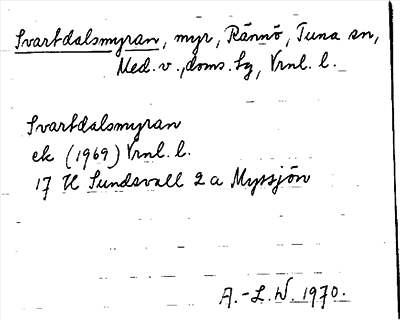 Svartdalsmyran, myr, Rännö, Tuna sn,
Med. v., doms. tg, Vrnl. l.
Svartdalsmyran
ek (1969) Vrnl. l.
17 H Sundsvall 2 a Myssjön
A.-L.W. 1970.